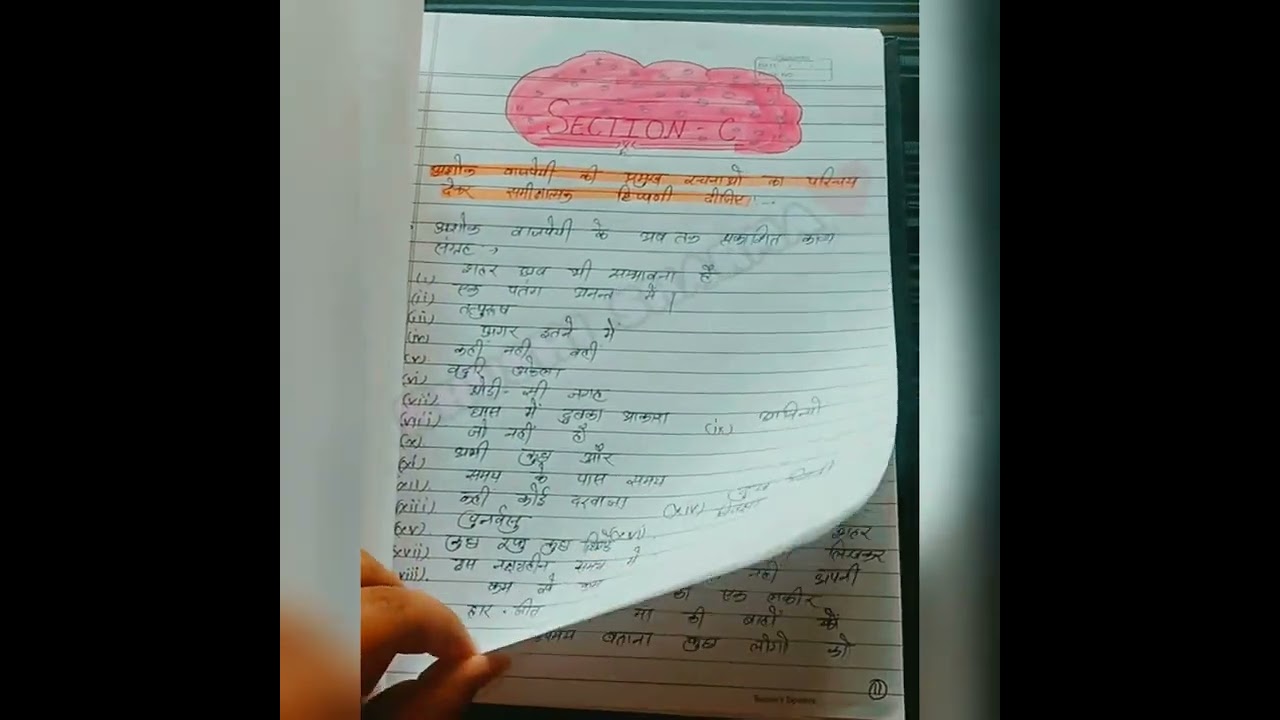 SECTION - C
अशोक वाजपेयी की प्रमुख रचनाओं का परिचय
देकर समीक्षात्मक टिप्पणी दीजिए
अशोक वाजपेयी के अब तक प्रकाशित काव्य
संग्रह
(i) शहर अब भी सम्भावना है
(ii) एक पतंग अनन्त में
(iii) तत्पुरूष
(iv) अगर इतने में
(v) कहीं नहीं वहीं
(vi) बहुरि अकेला
(vii) थोडी-सी जगह
(viii) घास में दुबका आकाश (ix)
(x) जो नहीं है
(xi) अभी कुछ और
(xii) समय के पास समय
(xiii) कहीं कोई दरवाजा (xiv)
(xv) पुनर्वसु
कुछ रफू कुछ (xvi)
(xvii) इस नक्षत्रहीन समय में
कम से कम
शहर
लिखकर
नहीं अपनी
का एक लकीर
हार-जीत
मां की बाहों
समय बताना कुछ लोगो को
11